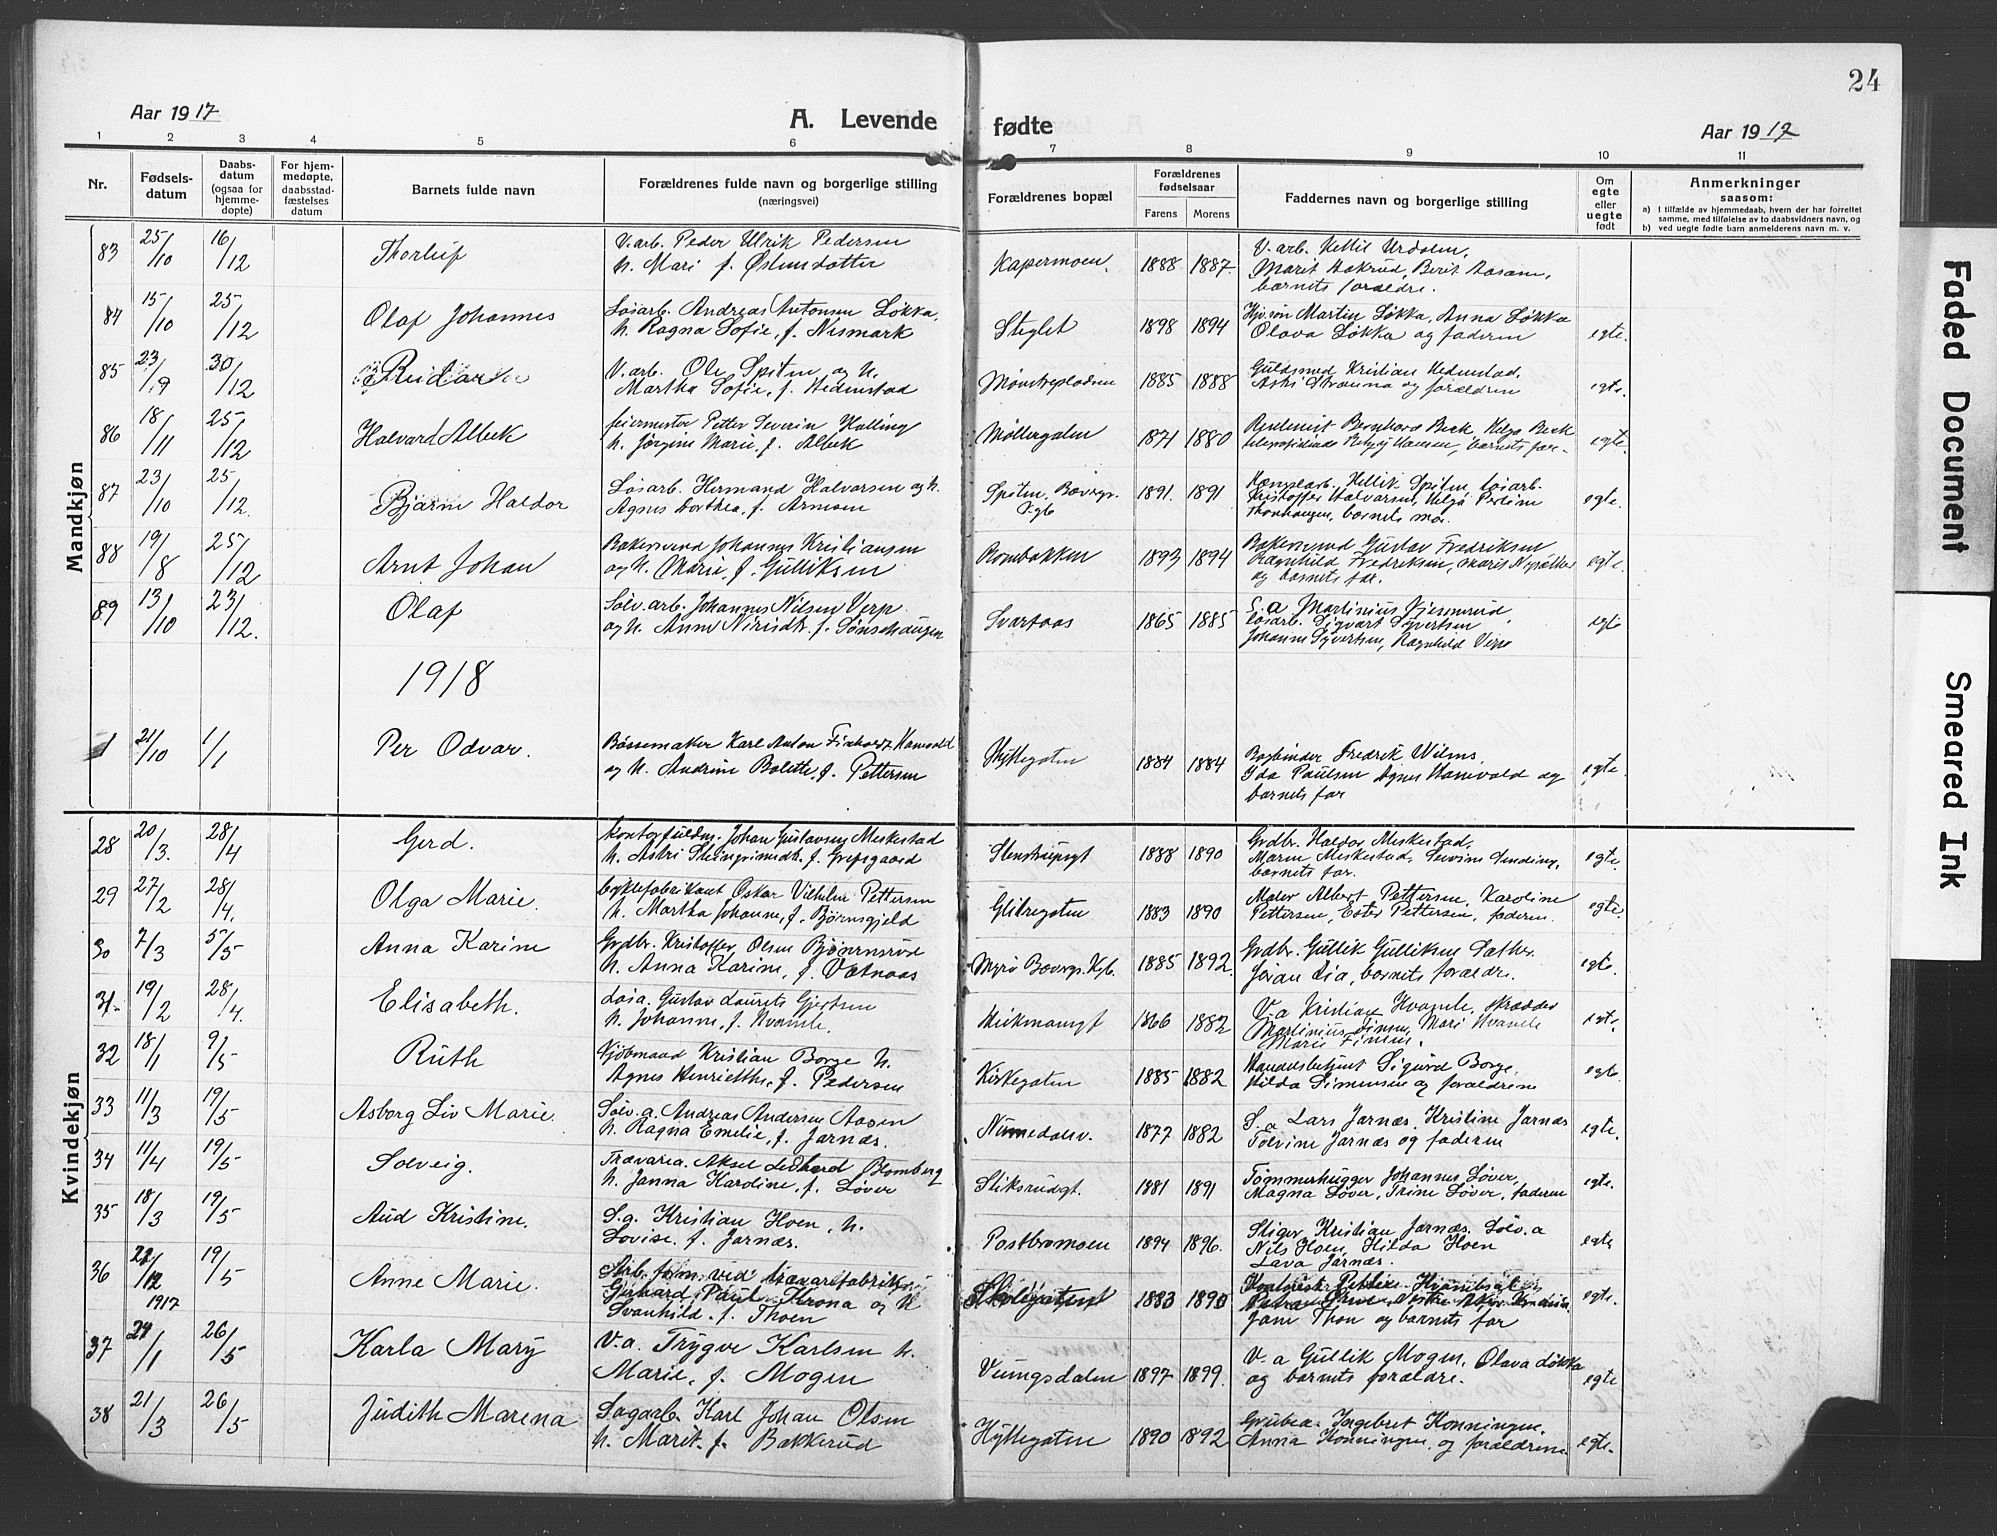 24
Aar 1917
A. Levende fødte
Aar 1917
1 2 3 4 5 6 7 8 9 10 11
Nr.
Fødsels-
datum
Daabs-
datum
(ogsaa for
hjemme-
døpte)
For hjem-
medøpte,
daabsstad-
fæstelses
datum
Barnets fulde navn
Forældrenes fulde navn og borgerlige stilling
(næringsvei)
Forældrenes bopæl
Forældrenes
fødselsaar
Farens Morens
Faddernes navn og borgerlige stilling
Om
egte
eller
uegte
født
Anmerkninger
saasom:
a) I tilfælde av hjemmedaab, hvem der har forrettet
samme, med tilføielse av to daabsvidners navn, og
b) ved uegte fødte barn anmelderens navn m. v.
Mandkjøn
83 25/10 16/12 Thorleif
V.arb. Peder Ulrik Pedersen
h. Mari f. Østensdatter
Kapermoen. 1888 1887
V. arb. Kettil Urdalen,
Marit Aakrud, Berit Aasane,
barnets forældre.
84 15/10 25/12 Olaf Johannes
Løsarb. Andreas Antonsen Løkka,
h. Ragna Sofie, f. Nismark
Steglet 1898 1894
Martin Løkka, Anna Løkka
Olava Løkka og faderen
egte.
85 23/9 30/12 Reidar
V.arb. Ole Spiten og h.
Martha Sofie, f. Hedenstad
Mønstrepladsen 1885 1888
Guldsmed Kristian Hedenstad,
og forældren
egte.
86 18/11 25/12 Halvard Albek
feiermester Petter Severin Halling
h. Jørgine Marie f. Albek
Møllergaten 1871 1880
Bernhard Beck, Helga Beck
barnets far-
egte.
87 23/10 25/12 Bjarne Haldor
Løsarb. Hermand Halvorsen og h.
Agnes Dorthea, f. Arnesen
Spiten, 1891. 1891
Hellik Spiten, løsarb.
Kristoffer Halvorsen, Helga
barnets mor.
egte.
88 19/8 25/12 Arnt Johan
Bakersvend Johannes Kristiansen
og h. Marie, f. Gulliksen
1893 1894
Bakersvend Gustav Fredriksen
Ragnhild Fredriksen,
og barnets far.
egte.
89 13/10 23/12. Olaf
Sølv.arb. Johannes Nilsen Verp
og h. Anne f. Sønsthaugen
Svartaas 1865 1885
S.a Martinius
løsarb. Sigvart Syvertsen
Johanne Syvertsen, Ragnhild Verp
egte
1918
1 21/10 1/1 Per Odvar.
Bøssemaker Karl Anton Hanevold
og h. Andrine Bolette, f. Pettersen
Hyttegaten 1884 1884
Bogbinder Fredrik Wilms,
Ida Paulsen Agnes Hanevold og
barnets far
egte.
Kvindekjøn
28 20/3. 28/4 Gerd.
Kontorfuldm. Johan Gustavsen Meskestad
h. Astri Steingrimsdt. f. Grepsgaard
Stenstrupsgt 1888 1890
Grdbr. Haldor Meskestad,
Maren Meskestad,
barnets far.
egte.
29 27/2 28/4. Olga Marie.
Cyklefabrikant Oskar Vilhelm Pettersen
h. Martha Johanne, f. Bjørnsgjeld
Glitregaten 1883 1890
Maler Albert Pettersen, Karoline
Pettersen, Ester Pettersen, faderen.
egte.
30 7/3 5/5 Anna Karine
Grdbr. Kristoffer Olsen Bjørnersrød
h. Anna Karine, f. Vatnaas
1885 1892
Grdbr. Gullik Gulliksen Sæther.
Lia, barnets forældre.
egte.
31 19/2 28/4. Elisabeth.
Løsa. Gustav Laurits Gjertsen
h. Johanne, f. Hvamle.
Hickmansgt 1866 1882
V.a Kristian Hvamle, skrædder
Martinius Simsen, Mari Hvamle
Marie Simsen.
egte.
32 18/1 9/5 Ruth
Kjøbmand Kristian Borge h.
Agnes Henriette, f. Pedersen
Kirkegaten 1885 1882
Handelsbetjent Sigurd Borge,
Hilda Simensen og forældrene
egte
33 11/3 19/5 Asborg Liv Marie.
Sølv.a. Andreas Andersen Aasen
h. Ragna Emelie, f. Jarnæs.
Numedalsv. 1877 1882
S.a Lars Jarnæs, Kristine Jarnæs
Tolvine Jarnæs og faderen
egte.
34 11/4 19/5 Solveig.
Trævarea. Aksel Ledhard Blomberg
h. Janna Karoline, f. Løver
Stiksrudgt. 1881 1891
Tømmerhugger Johannes Løver,
Magna Løver, Trine Løver, faderen
egte.
35 18/3 19/5 Aud Kristine.
S.a. Kristian Hoen, h.
Lovise. f. Jarnæs.
Postbromoen 1894 1896.
Stiger Kristian Jarnæs, Sølv.a
Nils Hoen, Hilda Hoen
Lava Jarnæs.
egte
36 22/12 1917 19/5 Anne Marie.
Arb.form. ved trævarefabrik
Gerhard Paul Krona og h
Svanhild. f. Thoen
1883 1890
Jane Thon og barnets far
egte.
37 24/1 26/5 Karla Mary
V.a. Trygve Karlsen h.
Marie, f. Mogen
Veungsdalen 1897 1899.
V.a Gullik Mogen, Olava Løkka
og barnets forældre.
egte
38 21/3 26/5 Judith Marena
Sagarb. Karl Johan Olsen
h. Marit f. Bakkerud
Hyttegaten 1890 1892
Grubea. Ingebret Konningen,
Anna Konningen, og forældrene
egte.
Faded Document
Smeared Ink